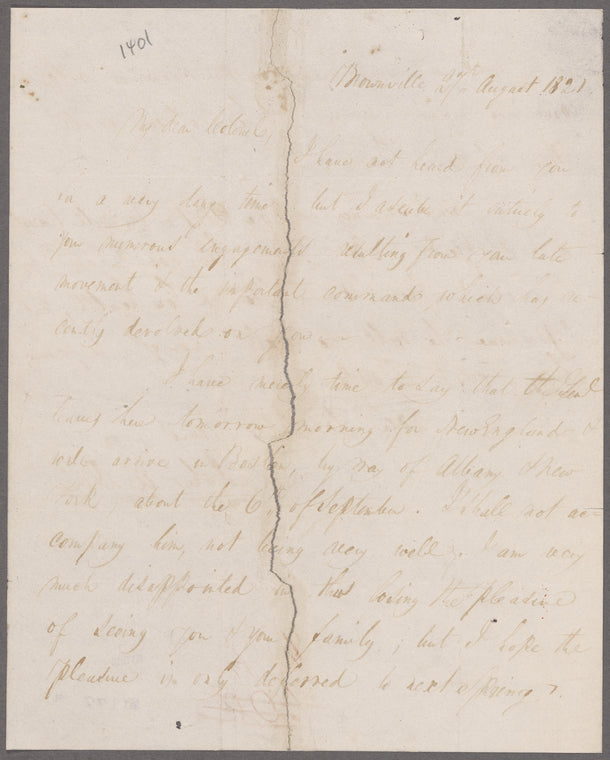 1401
Brownville, 27th August 1821
My dear Colonel,
I have not heard from you
in a very long time, but I ascribe it entirely to
your numerous engagements resulting from your late
movement & the important command which has re-
cently devolved on you —
I have merely time to say that the Genl
leaves here tomorrow morning for New England &
will arrive in Boston, by way of Albany & New
York about the 6th of September. I shall not ac-
company him, not being very well. I am very
much disappointed in thus losing the pleasure
of seeing you & your family; but I hope the
pleasure is only deferred to next Spring.